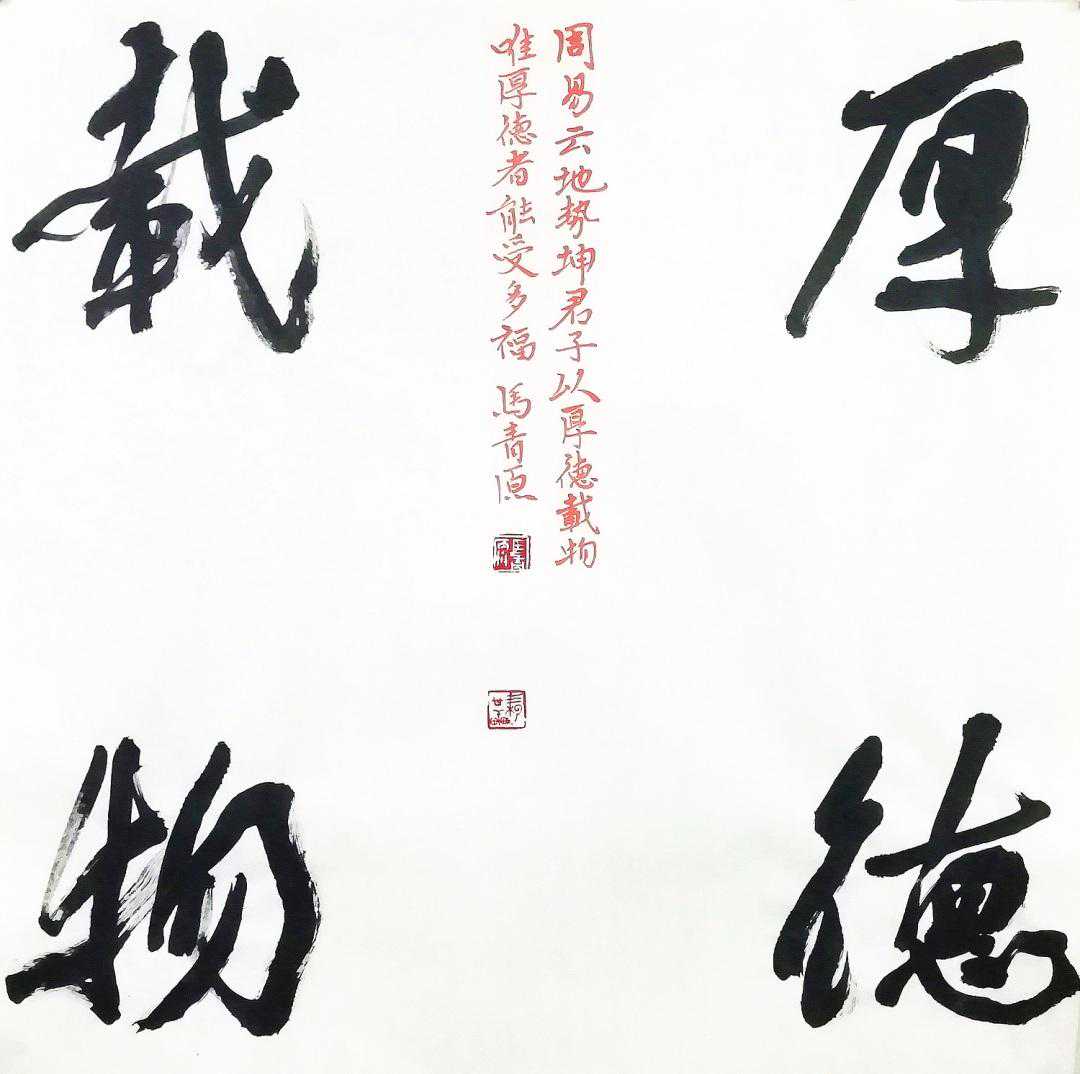 厚德
周易云地势坤君子以厚德載物
唯厚德者能受多福 馬青源
載物